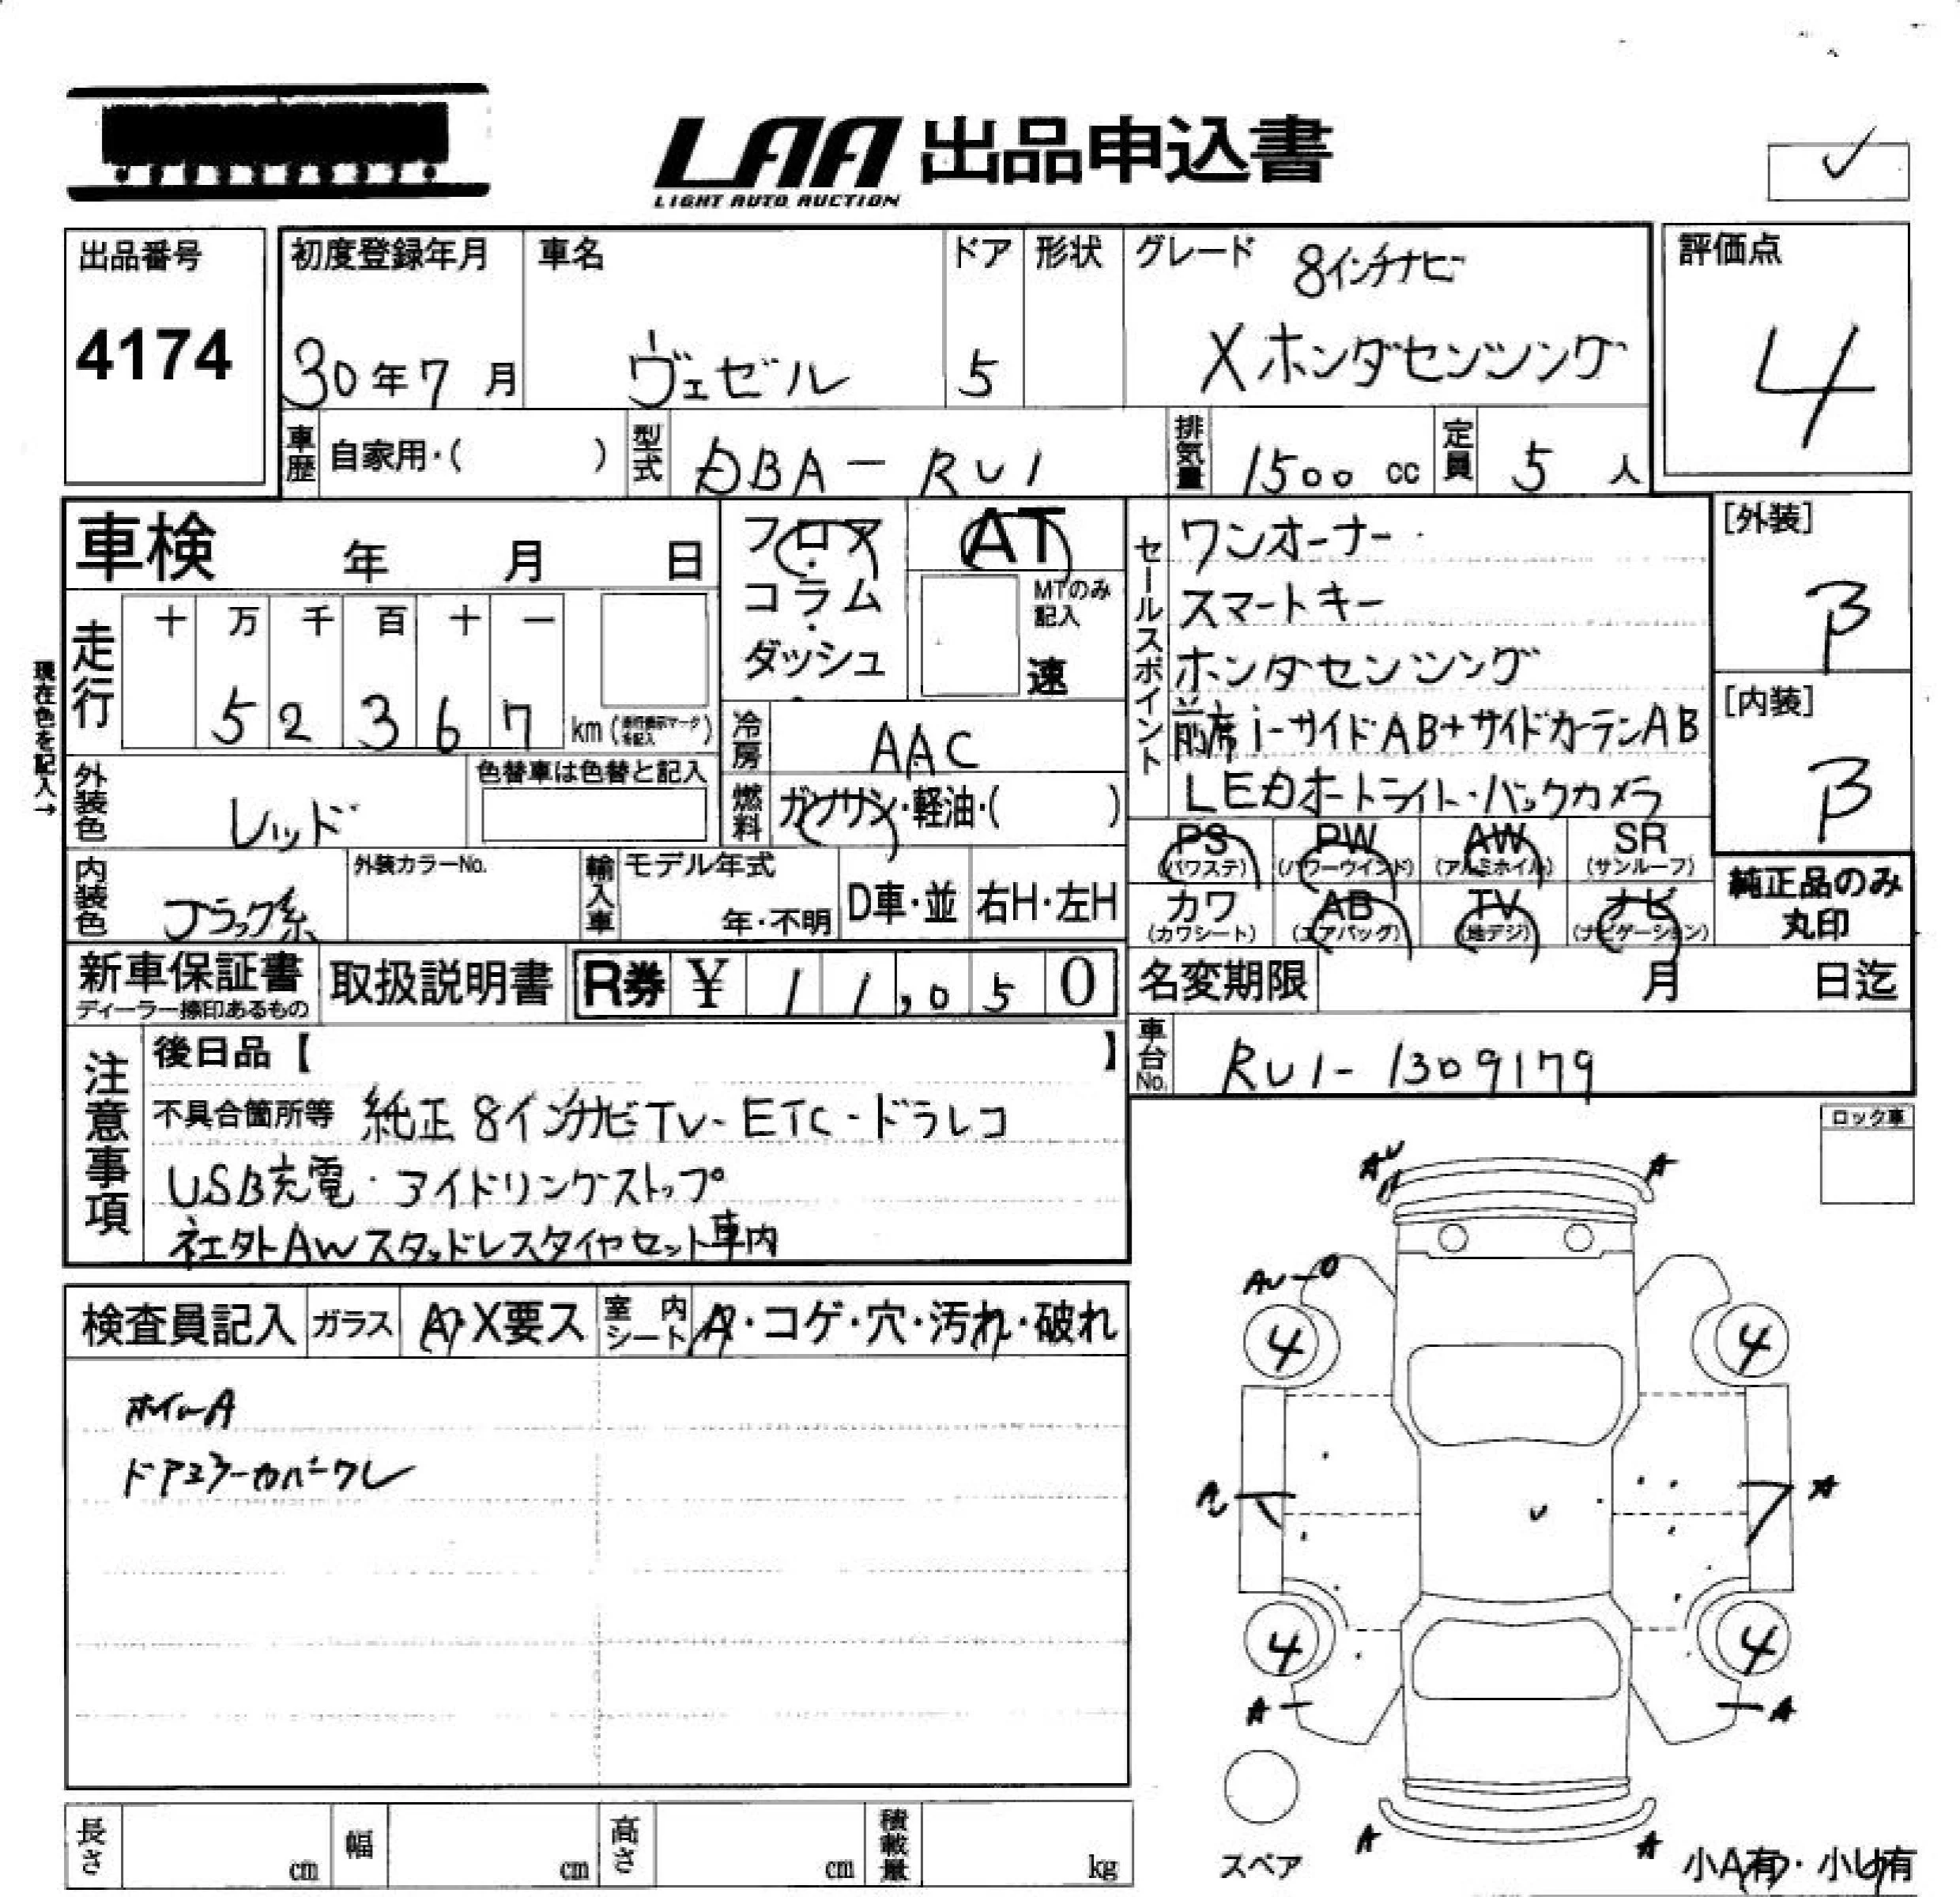 LAA 出品申込書
LIGHT AUTO AUCTION
出品番号
4174
初度登録年月
30年7月
車名
ヴェゼル
ドア
5
形状
グレード
8インチナビ
Xホンダセンシング
評価点
4
車歴 自家用・( )
型式 DBA-RU1
排気量 1500cc
定員 5人
車検 年 月 日
フロア・コラム・ダッシュ
AT
MTのみ記入
速
セールスポイント
ワンオーナー
スマートキー
ホンダセンシング
前席i-サイドAB+サイドカーテンAB
LEDオートライト・バックカメラ
[外装]
β
[内装]
β
現在色を記入→
走行
十 万 千 百 十 一
5 2 3 6 7 km
冷房 AAC
燃料 ガソリン・軽油・( )
外装色 レッド
色替車は色替と記入
内装色 ブラック系
外装カラーNo.
輸入車
モデル年式
年・不明
D車・並
右H・左H
PS (パワステ)
PW (パワーウインド)
AW (アルミホイル)
SR (サンルーフ)
カワ (カワシート)
AB (エアバッグ)
TV (地デジ)
ナビ (ナビゲーション)
純正品のみ丸印
新車保証書
ディーラー捺印あるもの
取扱説明書
R券 ¥ 11,050
名変期限 月 日迄
車台No. RU1-1309179
注意事項
後日品【 】
不具合箇所等 純正8インチナビTV-ETC-ドラレコ
USB充電・アイドリングストップ
社外AWスタッドレスタイヤセット車内
ロック車
検査員記入
ガラス A・X要ス
室内シート A・コゲ・穴・汚れ・破れ
ホイールA
ドアミラーカバーワレ
AU
A
AU-
4
4
A
A
4
4
A
A
スペア
A
A
小A有・小U有
長さ cm
幅 cm
高さ cm
積載量 kg